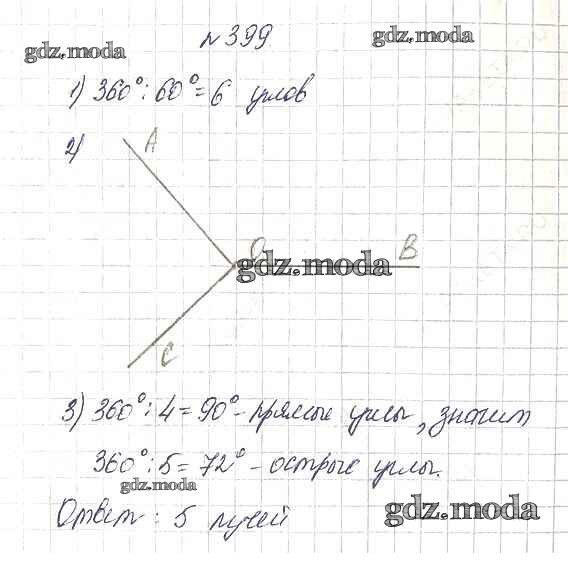 №399
gdz.moda
gdz.moda
1) 360° : 60° = 6 углов
2)
A
O
B
gdz.moda
C
3) 360° : 4 = 90° - прямые углы, значит
360° : 5 = 72° - острые углы.
gdz.moda
Ответ : 5 лучей
gdz.moda